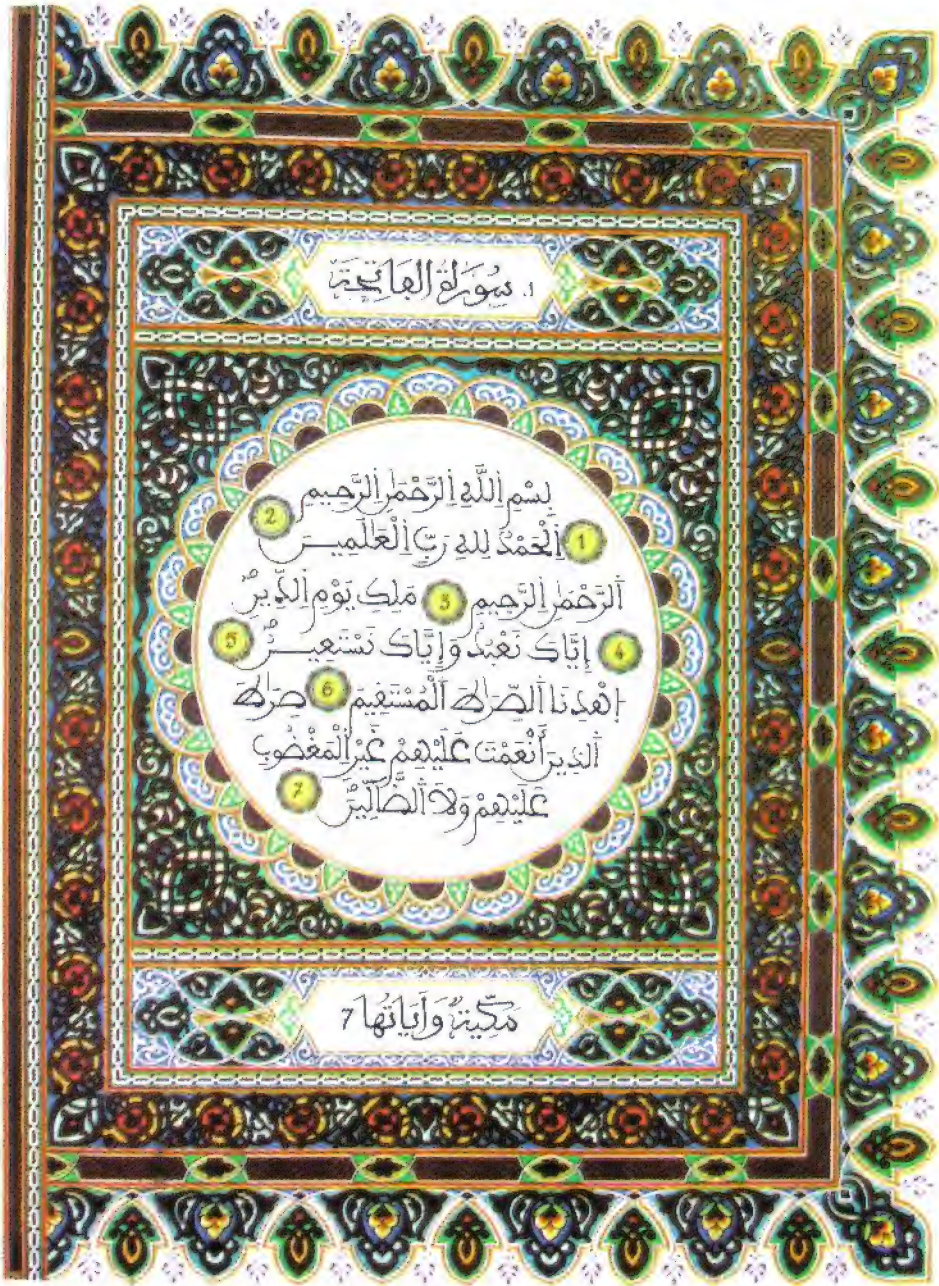 1. سُورَةُ الفَاتِحَة
بِسْمِ اِللَّهِ اِلرَّحْمَٰنِ اِلرَّحِيمِ
1 اَلْحَمْدُ لِلهِ رَبِّ اِلْعَٰلَمِينَ 2
اَلرَّحْمَٰنِ اِلرَّحِيمِ 3 مَلِكِ يَوْمِ اِلدِّينِ
4 إِيَّاكَ نَعْبُدُ وَإِيَّاكَ نَسْتَعِينُ 5
اِهْدِنَا اَلصِّرَٰطَ اَلْمُسْتَقِيمَ 6 صِرَٰطَ
اَلذِينَ أَنْعَمْتَ عَلَيْهِمْ غَيْرِ اِلْمَغْضُوبِ
عَلَيْهِمْ وَلَا اَلضَّآلِّينَ 7
مَكِّيَّةٌ وَآيَاتُهَا 7